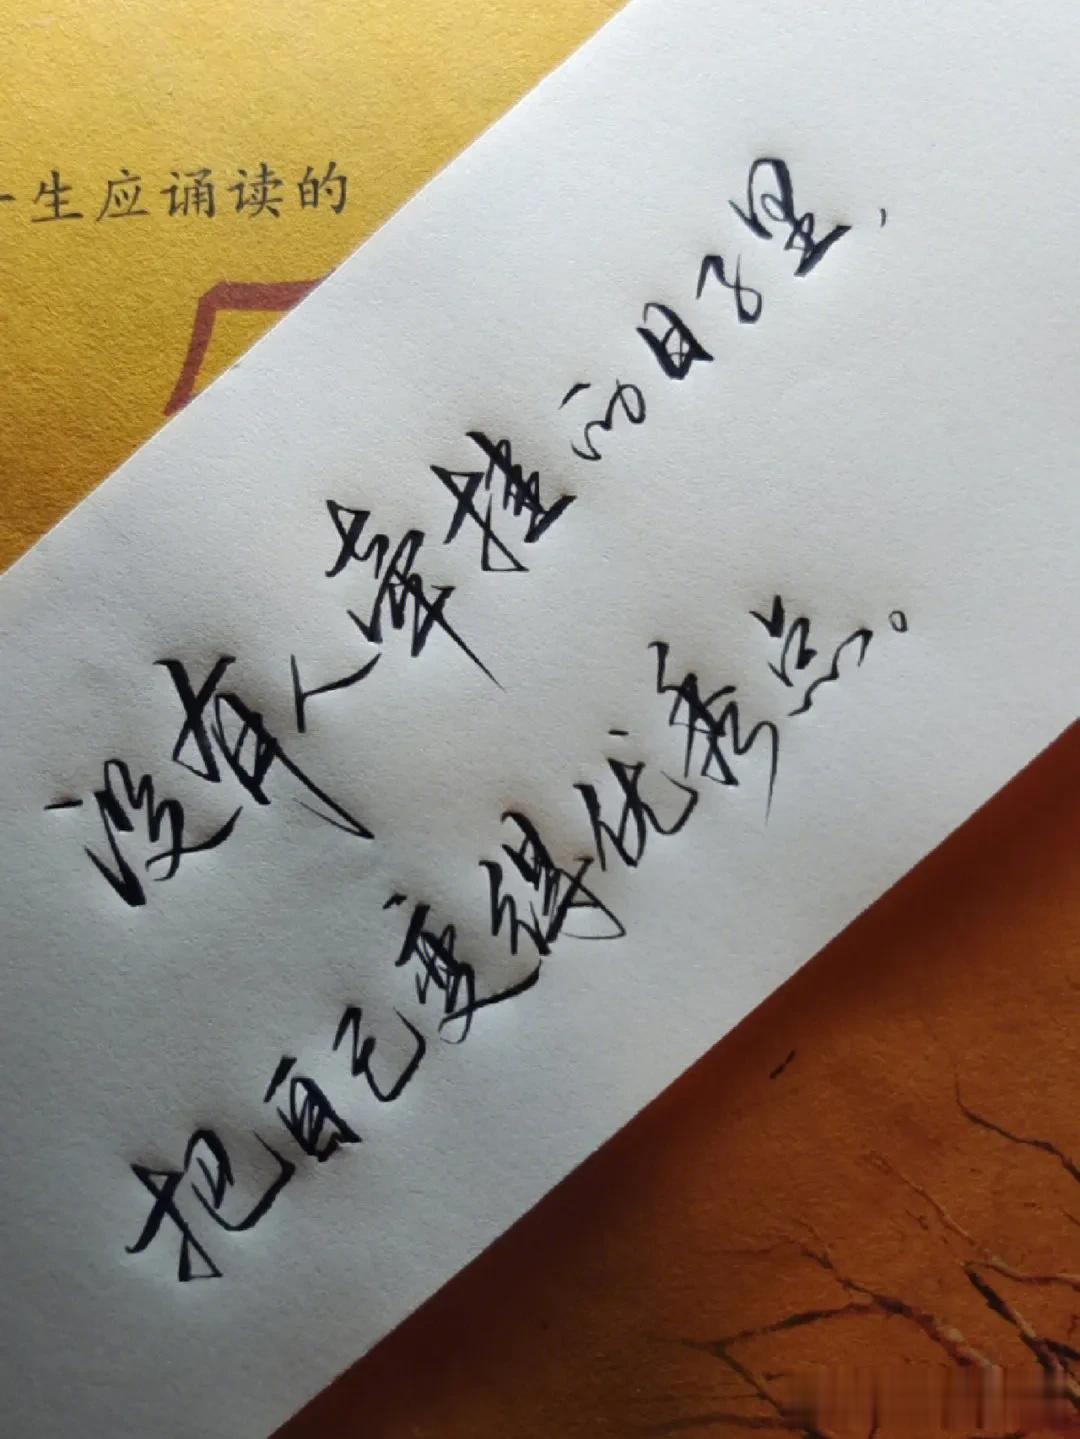 一生应诵读的
没有人牵挂的日子里，
把自己变得优秀点。